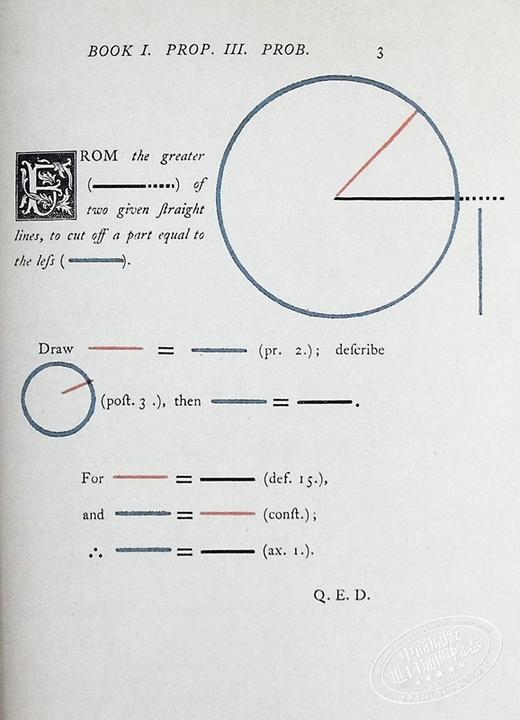 BOOK I. PROP. III. PROB. 3
FROM the greater
( ) of
two given ſtraight
lines, to cut off a part equal to
the leſs ( ).
Draw = (pr. 2.); deſcribe
(poſt. 3 .), then = .
For = (def. 15.),
and = (conſt.);
∴ = (ax. 1.).
Q. E. D.
中商原版
进口通关标志